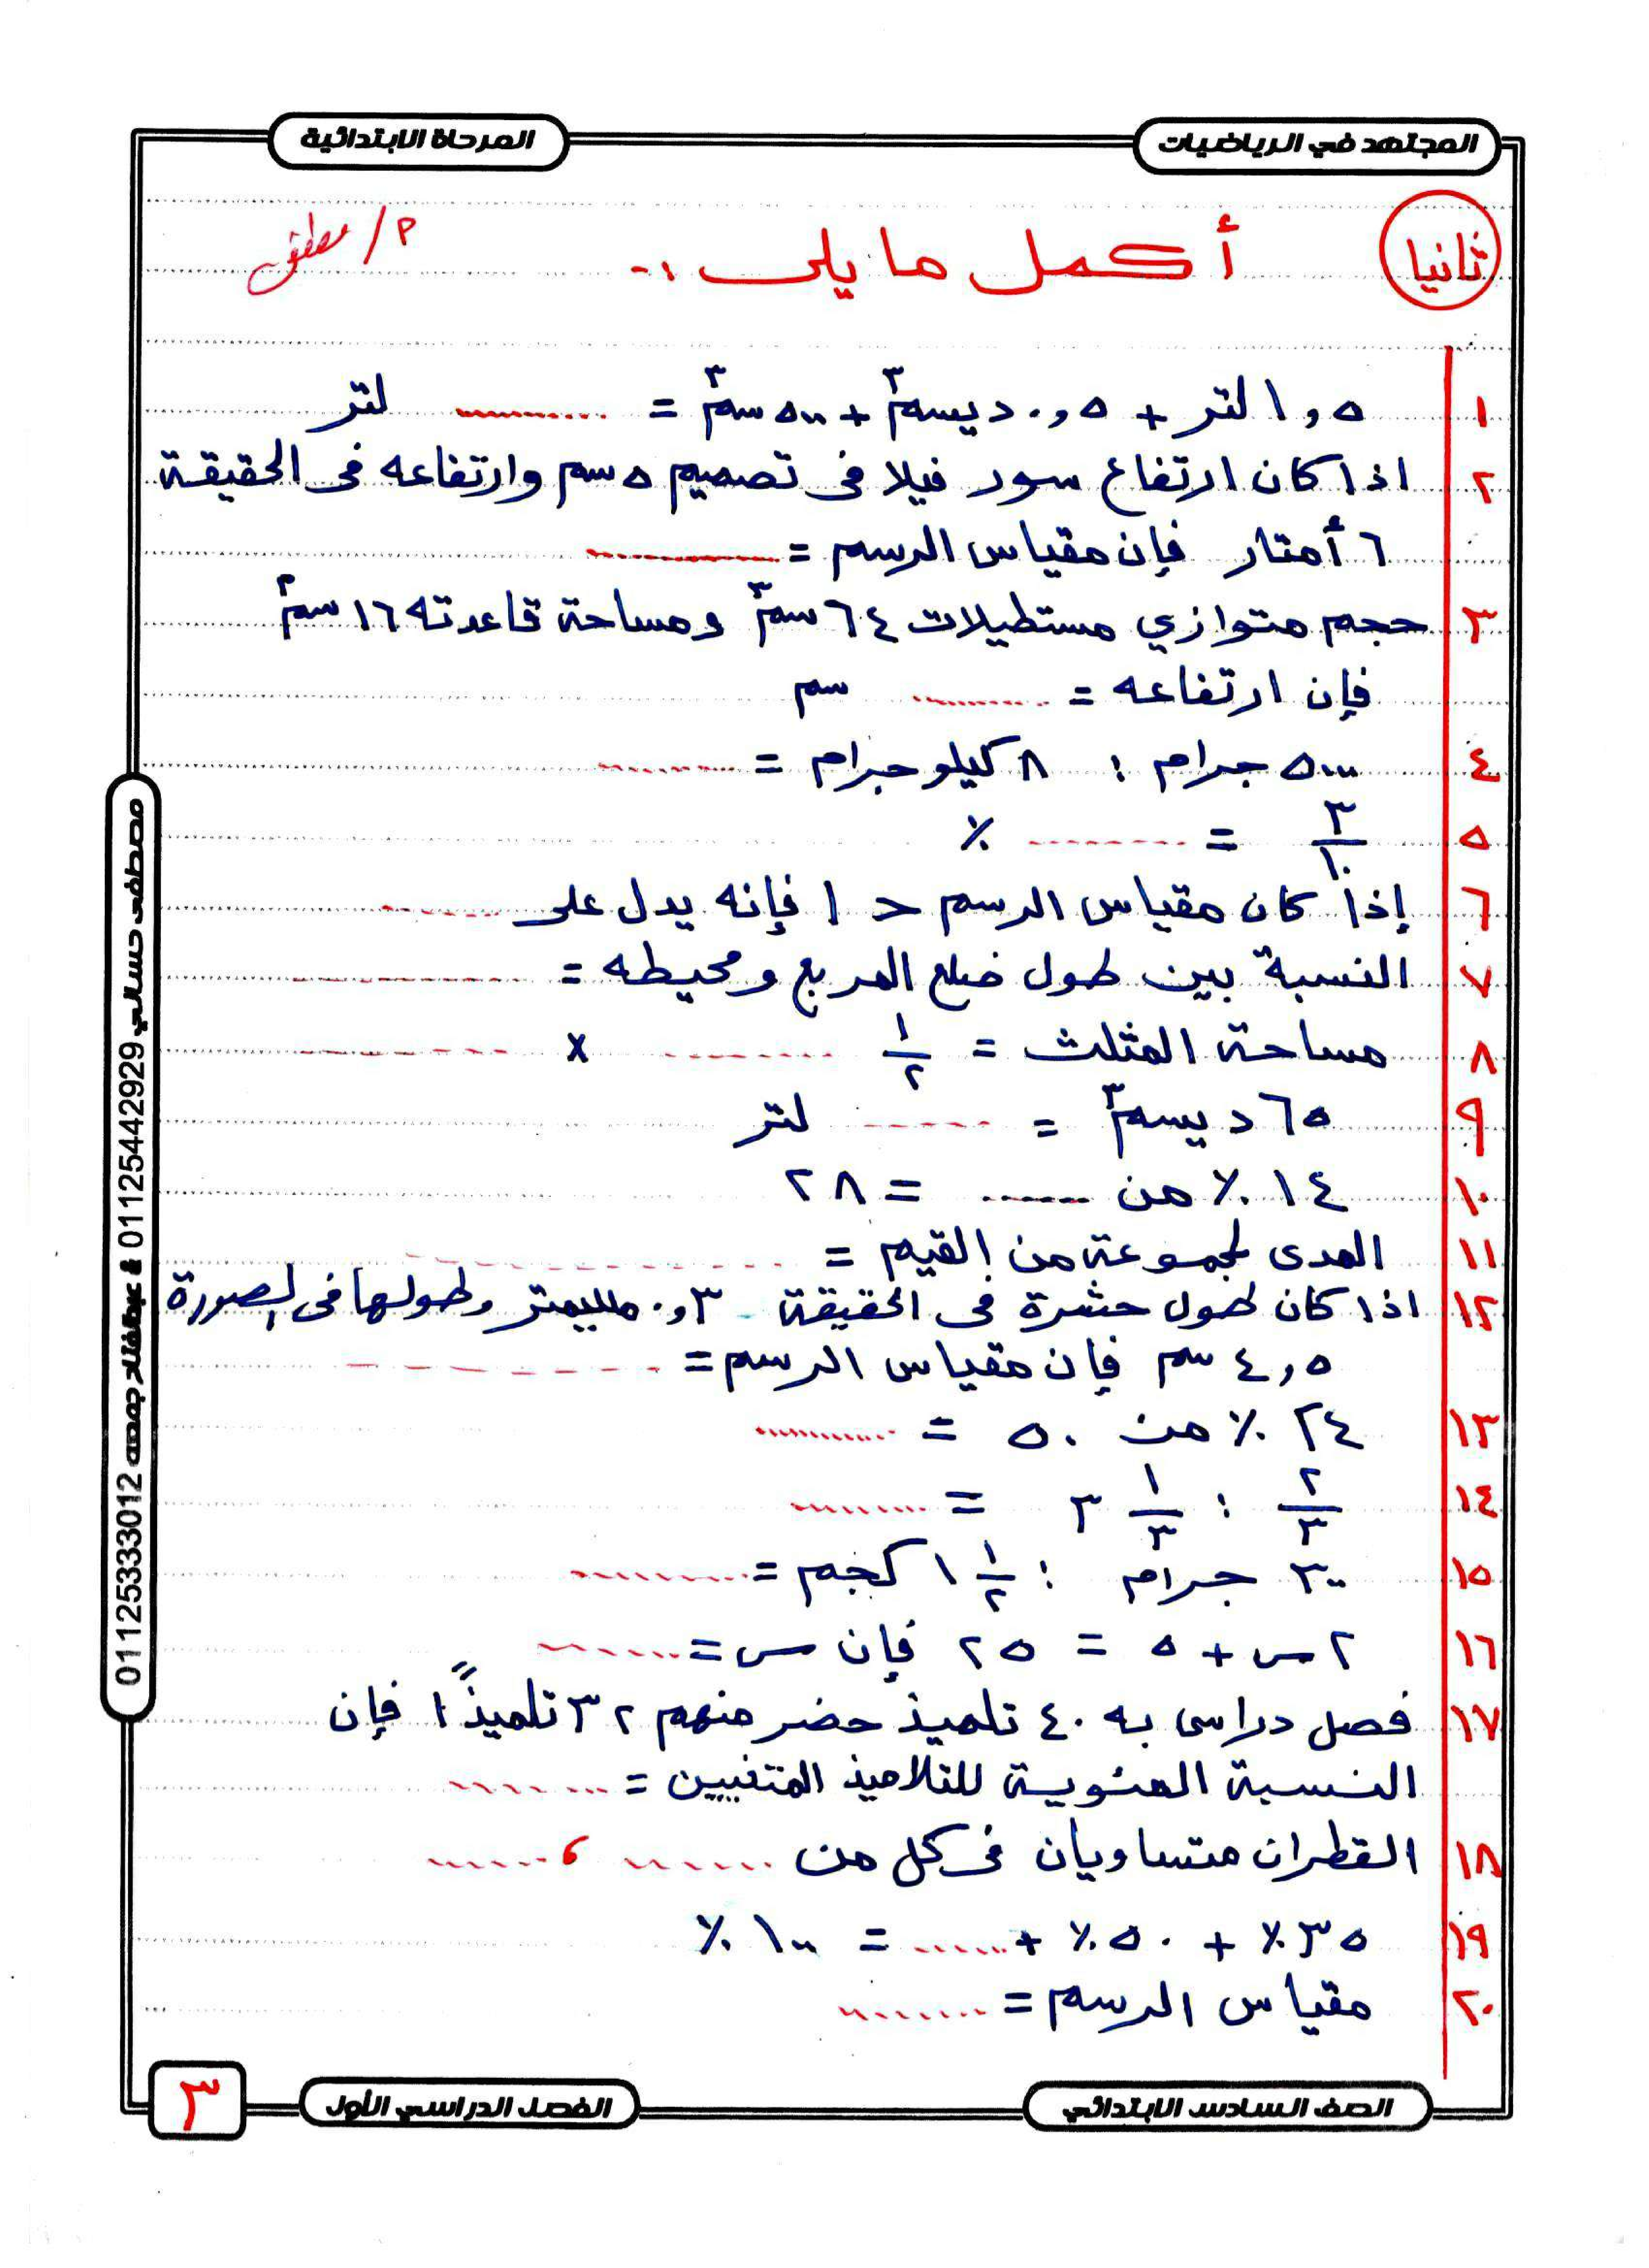 المجتهد في الرياضيات
المرحلة الابتدائية
ثانيا
أكمل ما يلى :-
م/ مصطفى
١ ١,٥ لتر + ٠,٥ ديسم٣ + ٥٠٠ سم٣ = .......... لتر
٢ اذا كان ارتفاع سور فيلا فى تصميم ٥ سم وارتفاعه فى الحقيقة
٦ أمتار فإن مقياس الرسم = ..........
٣ حجم متوازي مستطيلات ٦٤ سم٣ ومساحة قاعدته ١٦ سم٢
فإن ارتفاعه = .......... سم
٤ ٥٠٠٠ جرام : ٨ كيلو جرام = ..........
٥ ٣/١٠ = .......... %
٦ إذا كان مقياس الرسم > ١ فإنه يدل على ..........
٧ النسبة بين طول ضلع المربع ومحيطه = ..........
٨ مساحة المثلث = ١/٢ .......... × ..........
٩ ٦٥ ديسم٣ = .......... لتر
١٠ ١٤ % من .......... = ٢٨
١١ المدى لمجموعة من القيم = ..........
١٢ اذا كان طول حشرة فى الحقيقة ٠,٣ ملليمتر وطولها فى الصورة
٤,٥ سم فإن مقياس الرسم = ..........
١٣ ٢٤ % من ٥٠ = ..........
١٤ ٢/٣ : ٣ ١/٣ = ..........
١٥ ٣٠٠ جرام : ١ ١/٢ كجم = ..........
١٦ ٢س + ٥ = ٢٥ فإن س = ..........
١٧ فصل دراسى به ٤٠ تلميذ حضر منهم ٣٢ تلميذاً فإن
النسبة المئوية للتلاميذ المتغيبين = ..........
١٨ القطران متساويان فى كل من .......... ، ..........
١٩ ٣٥% + ٥٠% + .......... = ١٠٠%
٢٠ مقياس الرسم = ..........
مصطفى حسالي 01125442929 & 01125333012
الصف السادس الابتدائي
الفصل الدراسي الأول
٣